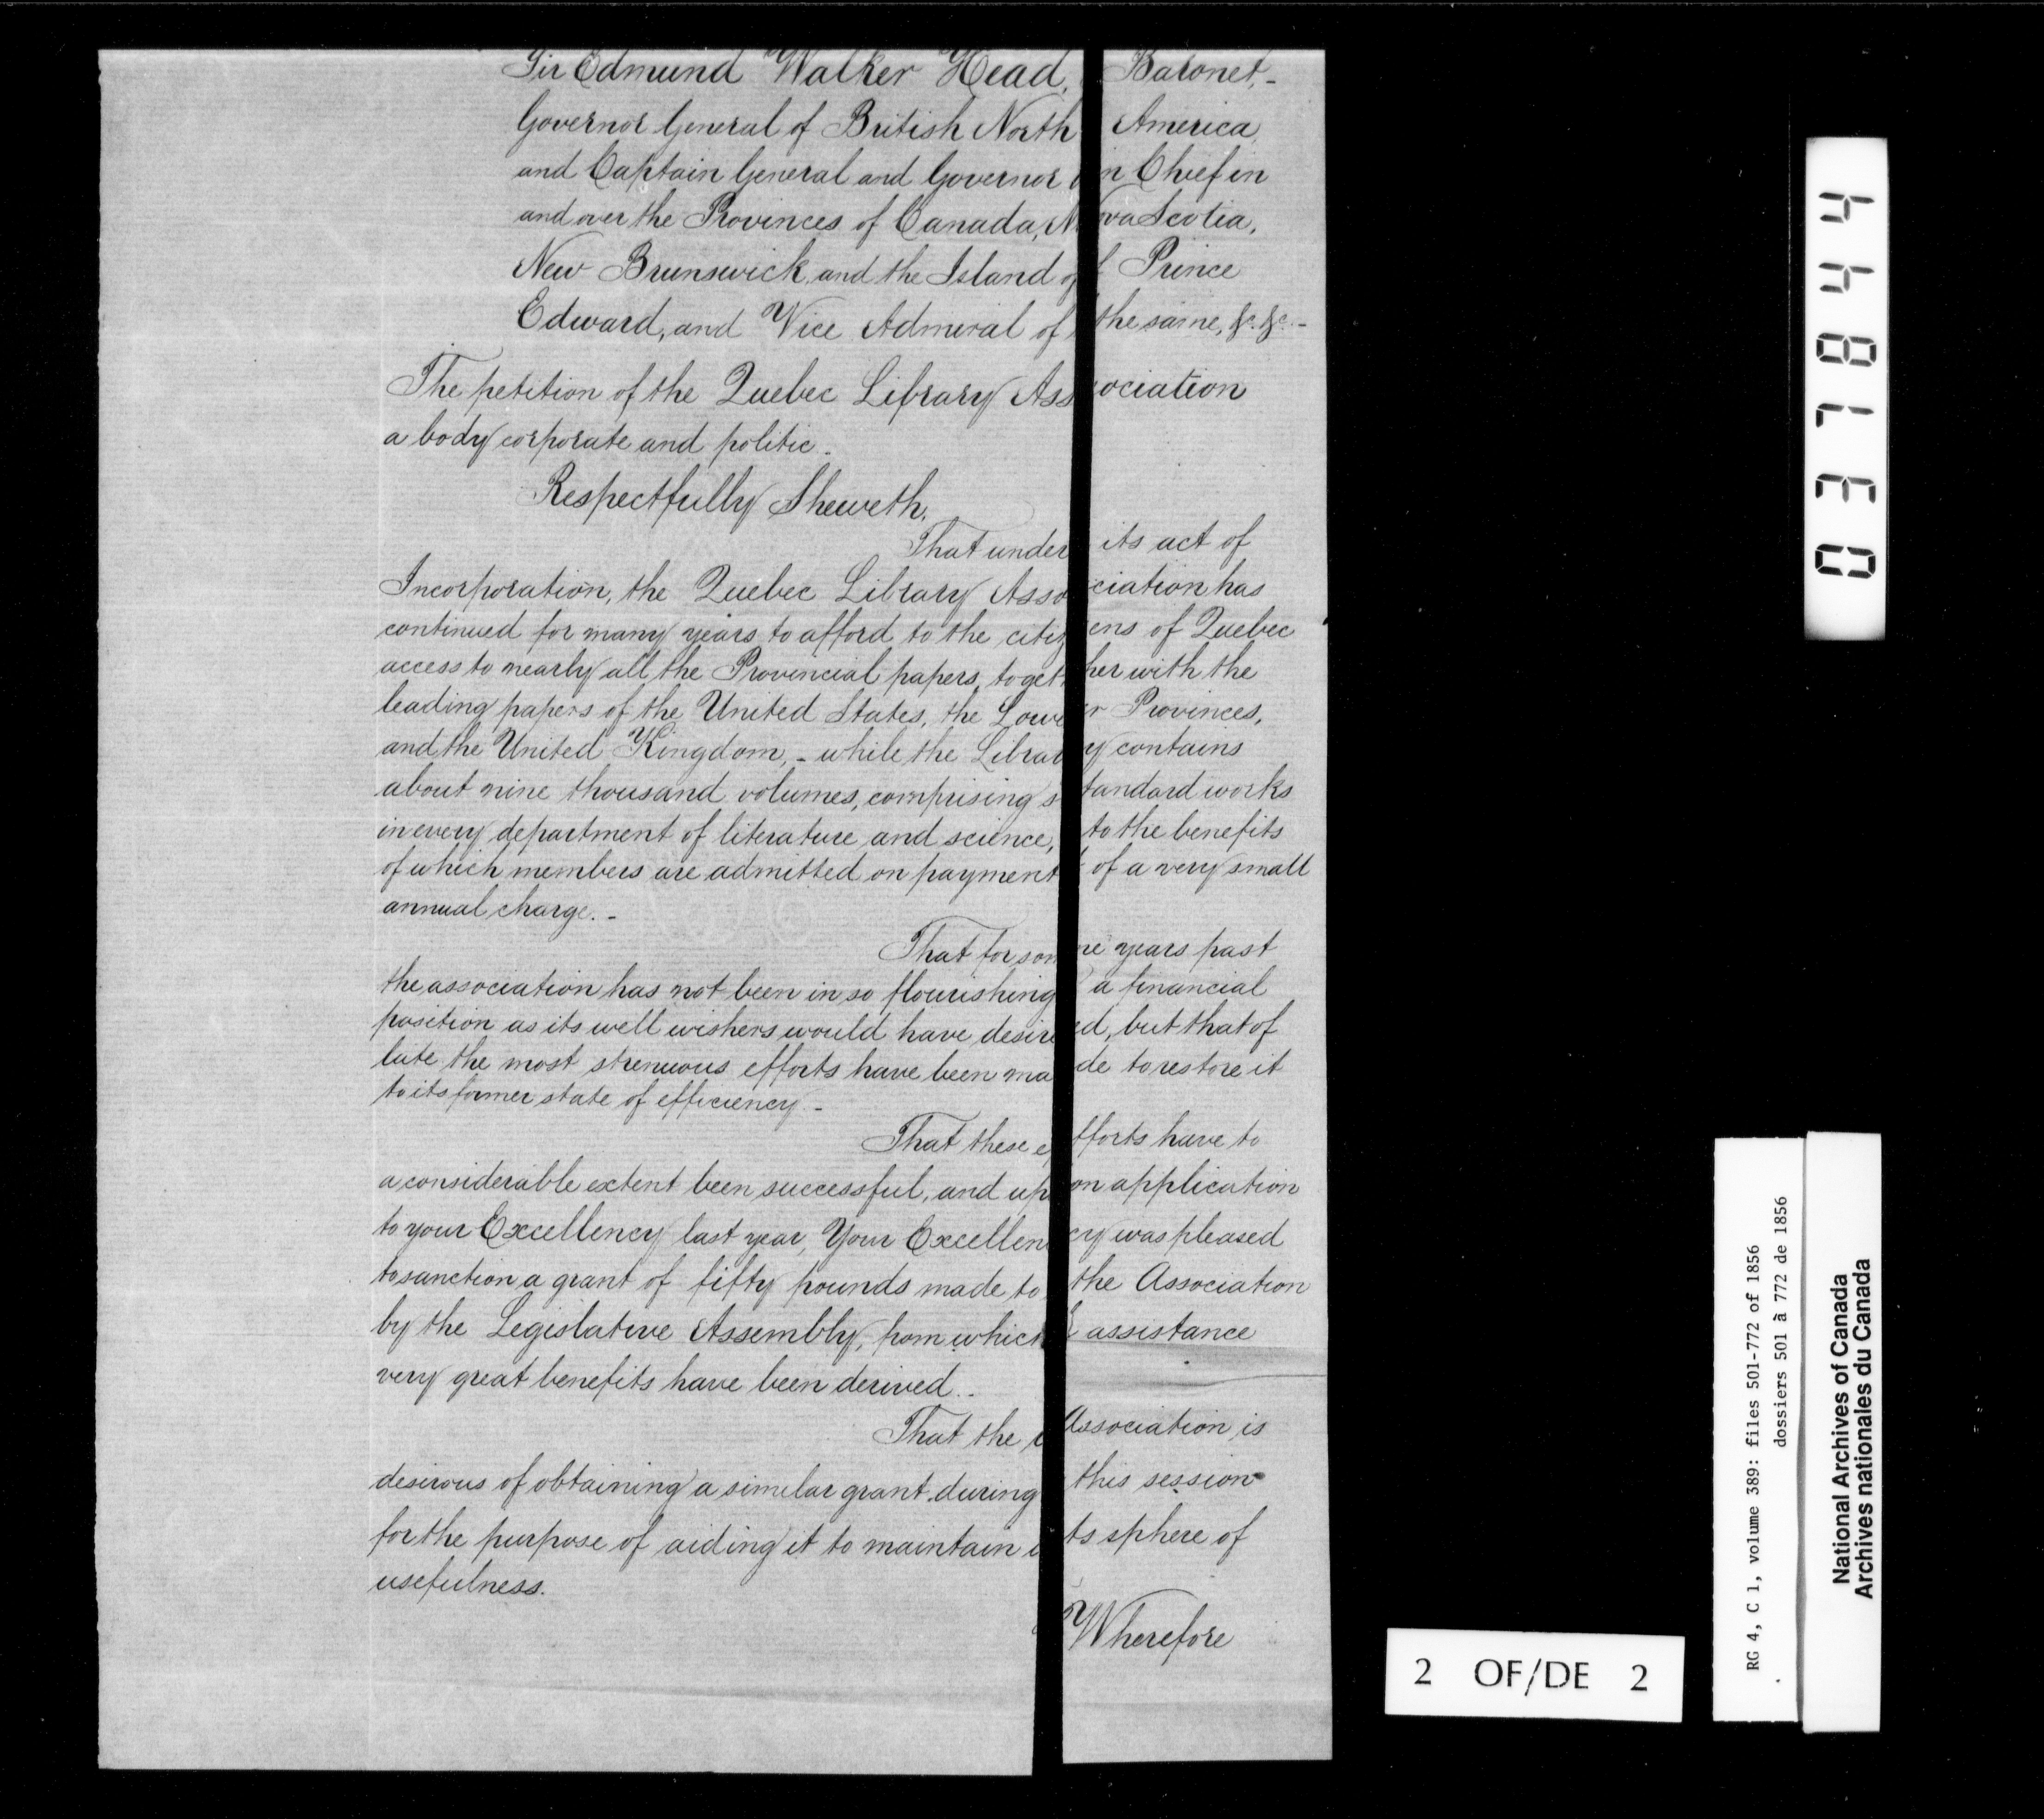 Sir Edmund Walker Head, Baronet,-
Governor General of British North America,
and Captain General and Governor in Chief in
and over the Provinces of Canada, Nova Scotia,
New Brunswick, and the Island of Prince
Edward, and Vice Admiral of the same, &c. &c. -
The petition of the Quebec Library Association
a body corporate and politic.
Respectfully Sheweth,
That under its act of
Incorporation, the Quebec Library Association has
continued for many years to afford to the citizens of Quebec
access to nearly all the Provincial papers, together with the
leading papers of the United States, the Lower Provinces,
and the United Kingdom, - while the Library contains
about nine thousand volumes, comprising standard works
in every department of literature and science, to the benefits
of which members are admitted on payment of a very small
annual charge. -
That for some years past
the association has not been in so flourishing a financial
position as its well wishers would have desired, but that of
late the most strenuous efforts have been made to restore it
to its former state of efficiency -
That these efforts have to
a considerable extent been successful, and upon application
to your Excellency last year, Your Excellency was pleased
to sanction a grant of fifty pounds made to the Association
by the Legislative Assembly, from which assistance
very great benefits have been derived. -
That the Association is
desirous of obtaining a similar grant during this session
for the purpose of aiding it to maintain its sphere of
usefulness.
Wherefore
037844
RG 4, C 1, volume 389: files 501-772 of 1856
dossiers 501 à 772 de 1856
National Archives of Canada
Archives nationales du Canada
2 OF/DE 2